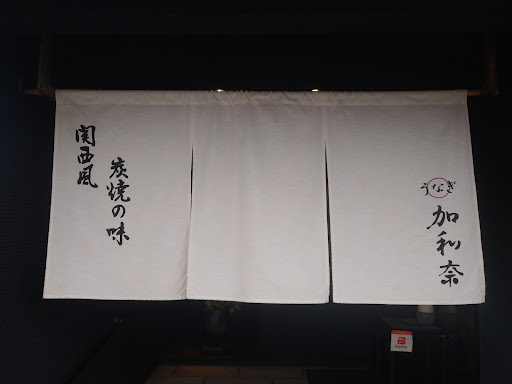 うなぎ
加和奈
関西風
炭焼の味